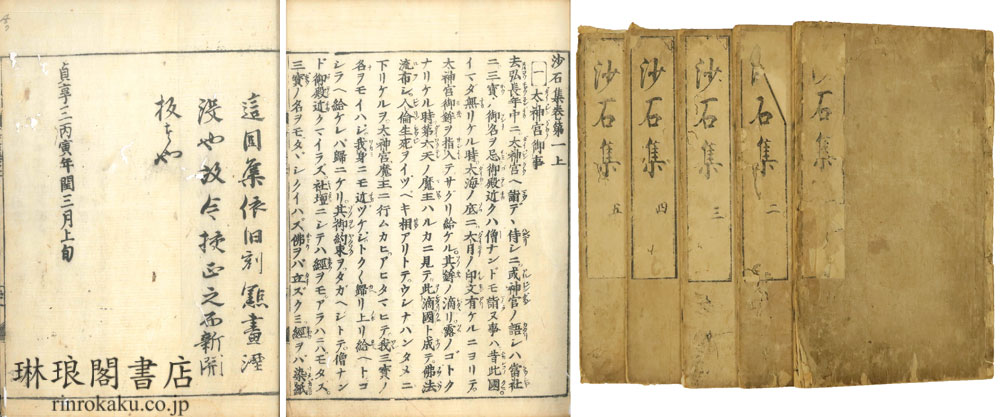 這回集依旧刻點畫湮
没也故今挍正之而新開
板
貞享三丙寅年閏三月上旬
沙石集卷第一上
一 太神宮御事
去弘長年中ニ太神宮ヘ詣デヽ侍シニ或神官ノ語シハ當社
ニ三寶ノ御名ヲ忌御殿近クハ僧ナンドモ詣ヌ事ハ昔此國
イマタ無リケル時大海ノ底ニ大日ノ印文有ケルニヨリテ
太神宮御鉾ヲ指入テサグリ給ケル其鉾ノ滴リ露ノゴトク
ナリケル時第六天ノ魔王ハルカニ見テ此滴國ト成テ佛法
流布シ人倫生死ヲイヅベキ相アリトテウレナハンタメニ
下リケルヲ太神宮魔王ニ行ムカヒアヒタマヒテ我三寶ノ
名ヲモイハシ我身ニモ近ヅケシトク〱歸リ上リ給ヘトコ
シラヘ給ケレバ歸ニケリ其御約束ヲタガヘシトテ僧ナン
ド御殿近クマイラズ社壇ニシテハ經ヲモアラハニハモタス
三寶ノ名ヲモタヽシクイハズ佛ヲバ立スクミ經ヲバ染紙
石集
石集 二
沙石集 三
沙石集 四
沙石集 五
琳琅閣書店
rinrokaku.co.jp